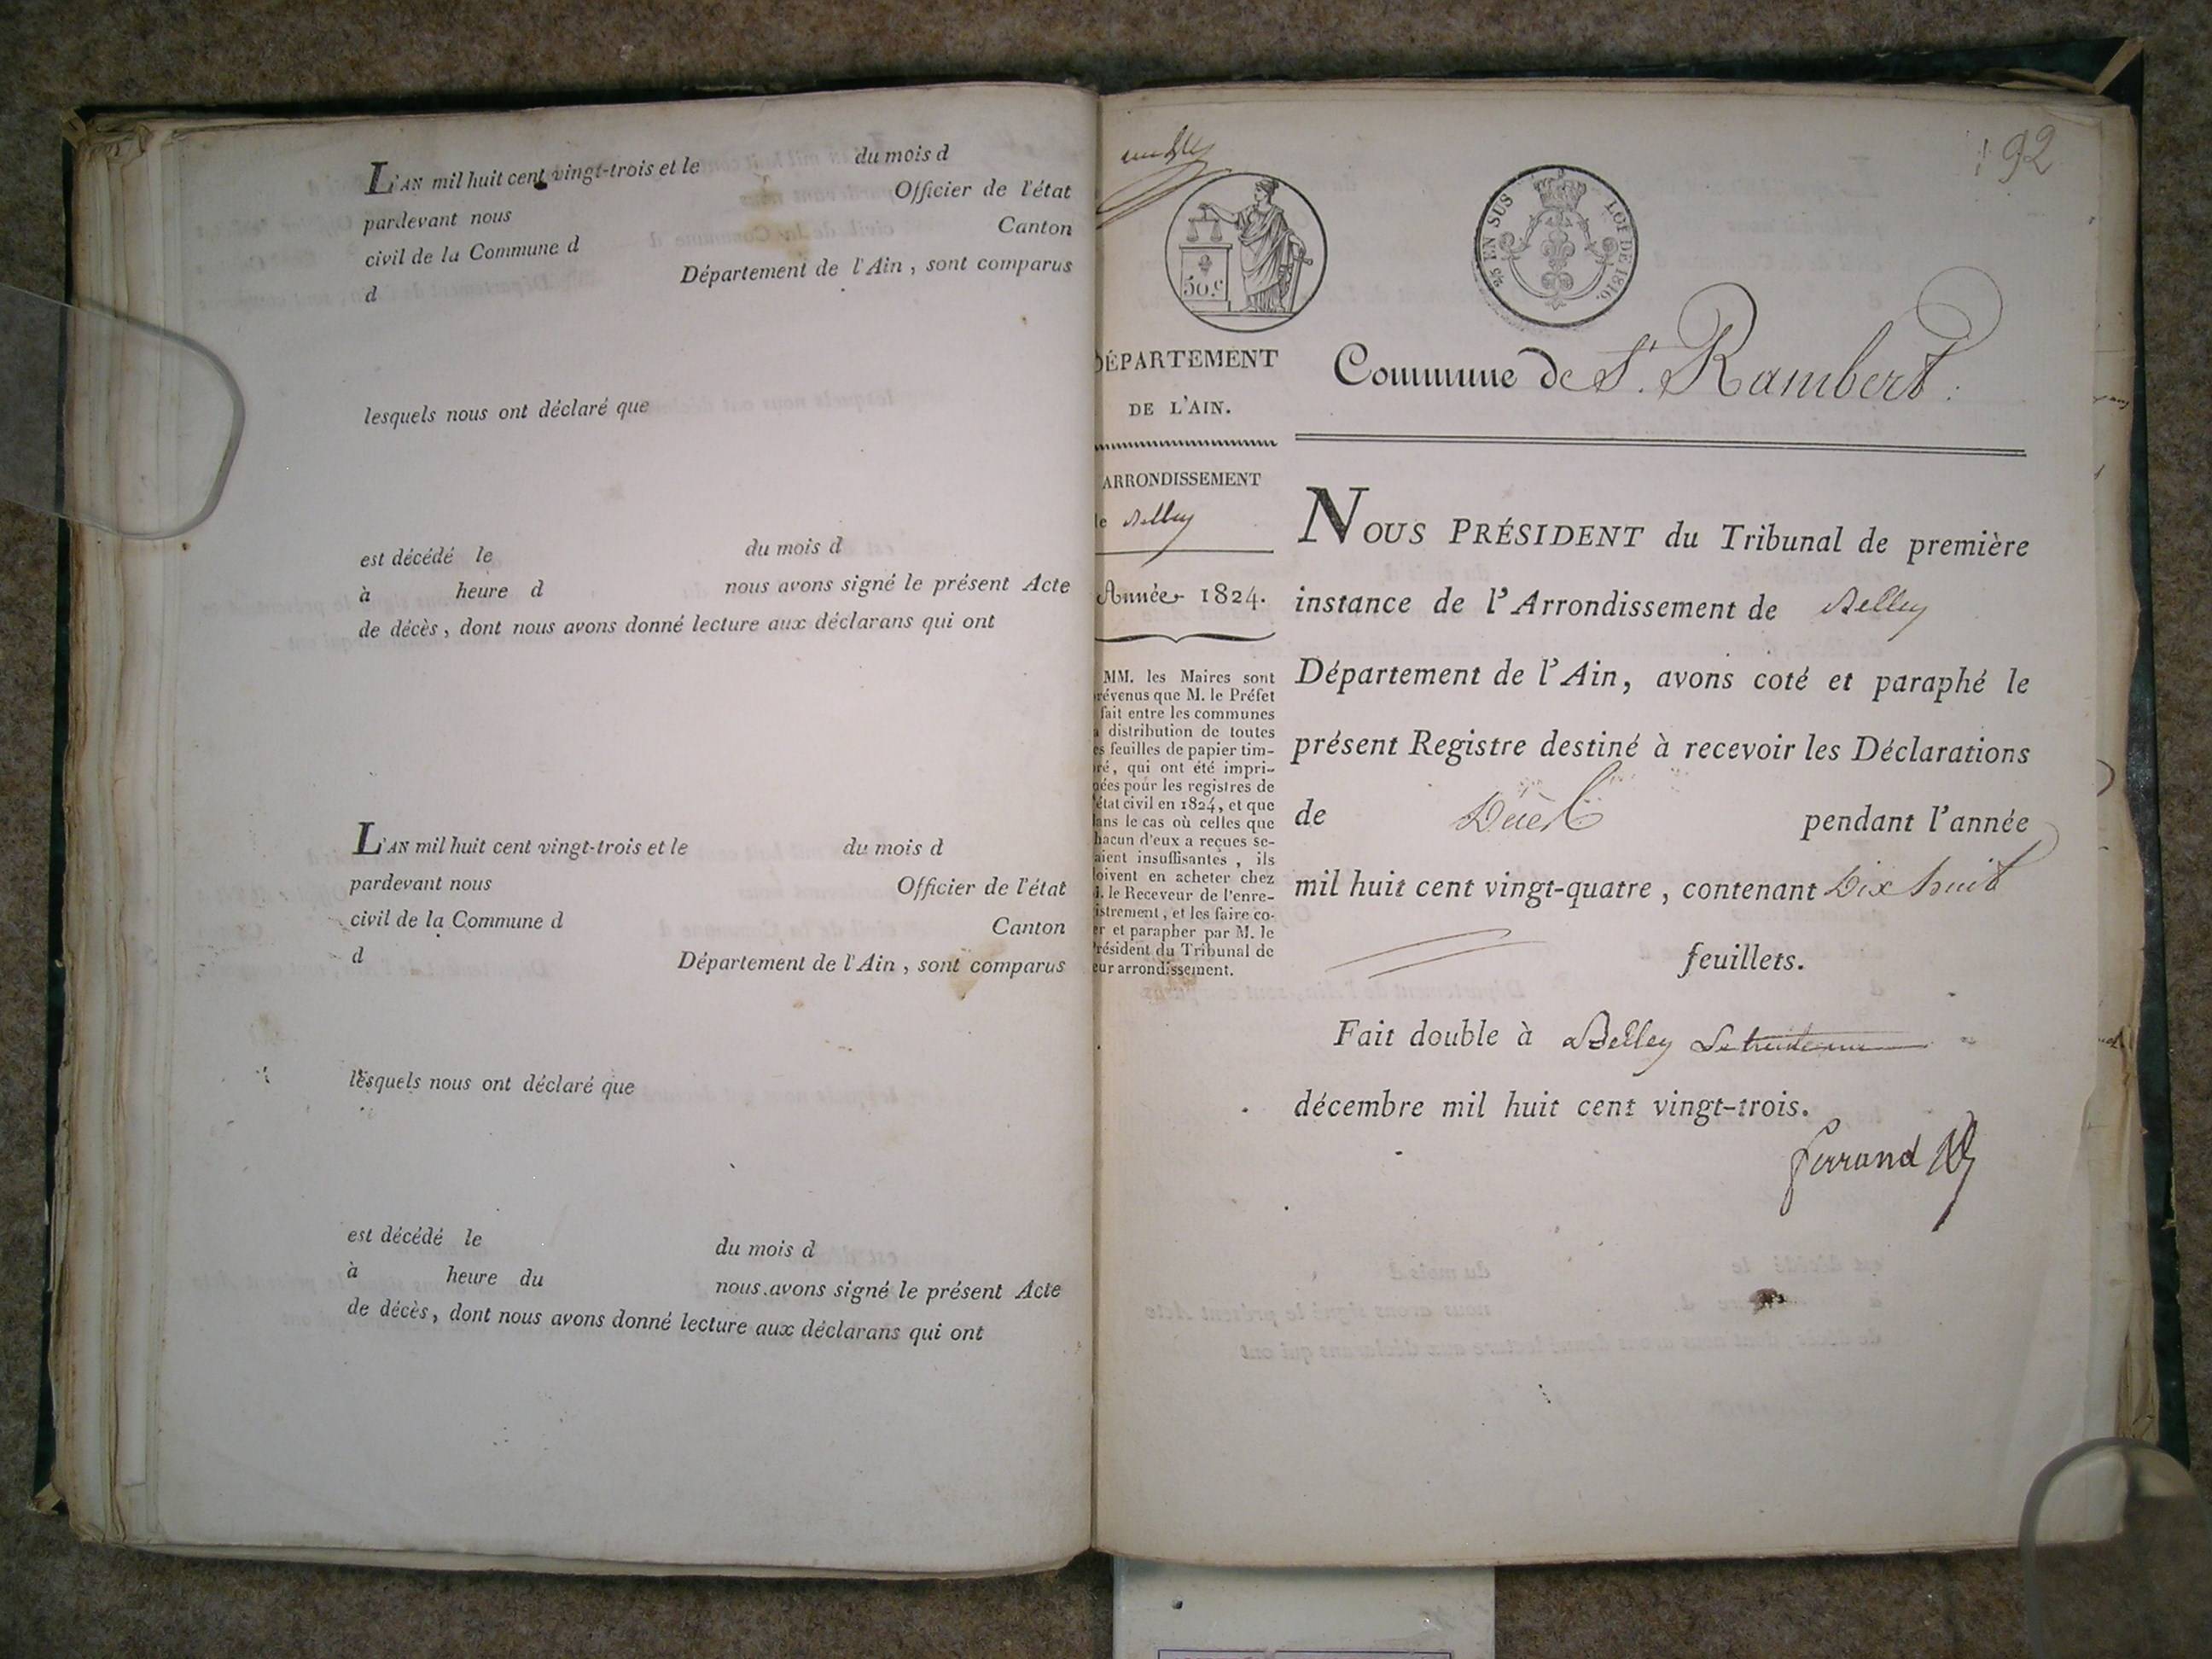 L'AN mil huit cent vingt-trois et le du mois d
pardevant nous Officier de l'état
civil de la Commune d Canton
d Département de l'Ain, sont comparus
lesquels nous ont déclaré que
est décédé le du mois d
à heure d nous avons signé le présent Acte
de décès, dont nous avons donné lecture aux déclarans qui ont
L'AN mil huit cent vingt-trois et le du mois d
pardevant nous Officier de l'état
civil de la Commune d Canton
d Département de l'Ain, sont comparus
lesquels nous ont déclaré que
est décédé le du mois d
à heure du nous avons signé le présent Acte
de décès, dont nous avons donné lecture aux déclarans qui ont
192
50.c
25 EN SUS LOI DE 1816.
DÉPARTEMENT
DE L'AIN.
ARRONDISSEMENT
de Belley
Année 1824.
MM. les Maires sont
prévenus que M. le Préfet
fait entre les communes
la distribution de toutes
les feuilles de papier tim-
bré, qui ont été impri-
mées pour les registres de
l'état civil en 1824, et que
dans le cas où celles que
chacun d'eux a reçues se-
raient insuffisantes, ils
doivent en acheter chez
M. le Receveur de l'enre-
gistrement, et les faire co-
ter et parapher par M. le
Président du Tribunal de
leur arrondissement.
Commune de St. Rambert.
NOUS PRÉSIDENT du Tribunal de première
instance de l'Arrondissement de Belley
Département de l'Ain, avons coté et paraphé le
présent Registre destiné à recevoir les Déclarations
de Décès pendant l'année
mil huit cent vingt-quatre, contenant Dix huit
feuillets.
Fait double à Belley Le
décembre mil huit cent vingt-trois.
ferrand